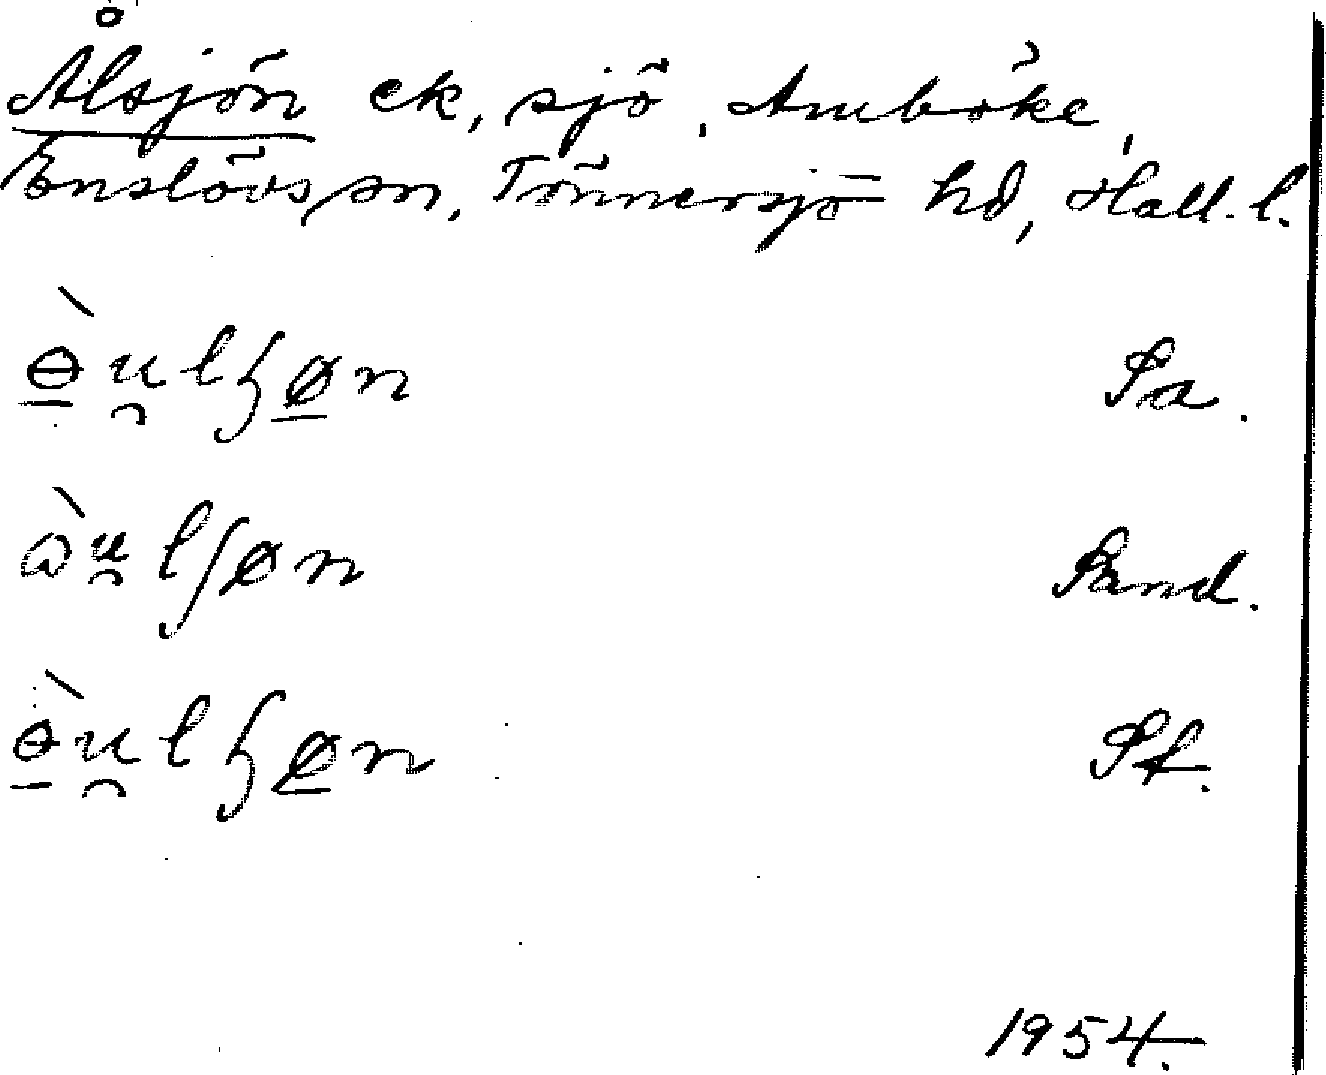 Ålsjön ek, sjö, Amböke,
Enslövs sn, Tönnersjö hd, Hall. l.
ɵ̀u̯lɧøn Sa.
ɷ̀u̯lʃøn Sand.
ɵ̀u̯lɧøn Sf.
1954.